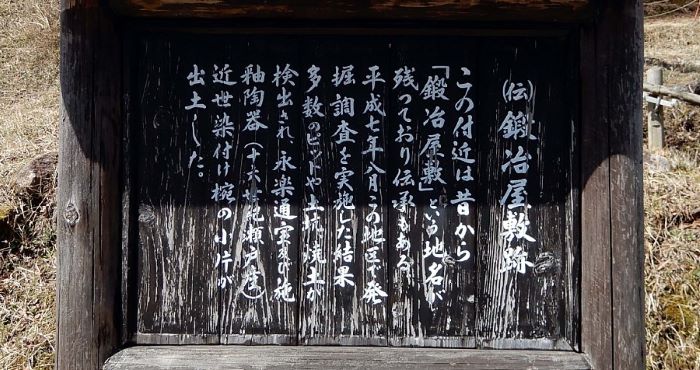 (伝)鍛冶屋敷跡
この付近は昔から
「鍛冶屋敷」という地名が
残っており伝承もある。
平成七年八月この地区で発
掘調査を実施した結果
多数のピットや土坑、焼土が
検出され、永楽通宝及び施
釉陶器(十六世紀瀬戸産)
近世染付け椀の小片が
出土した。